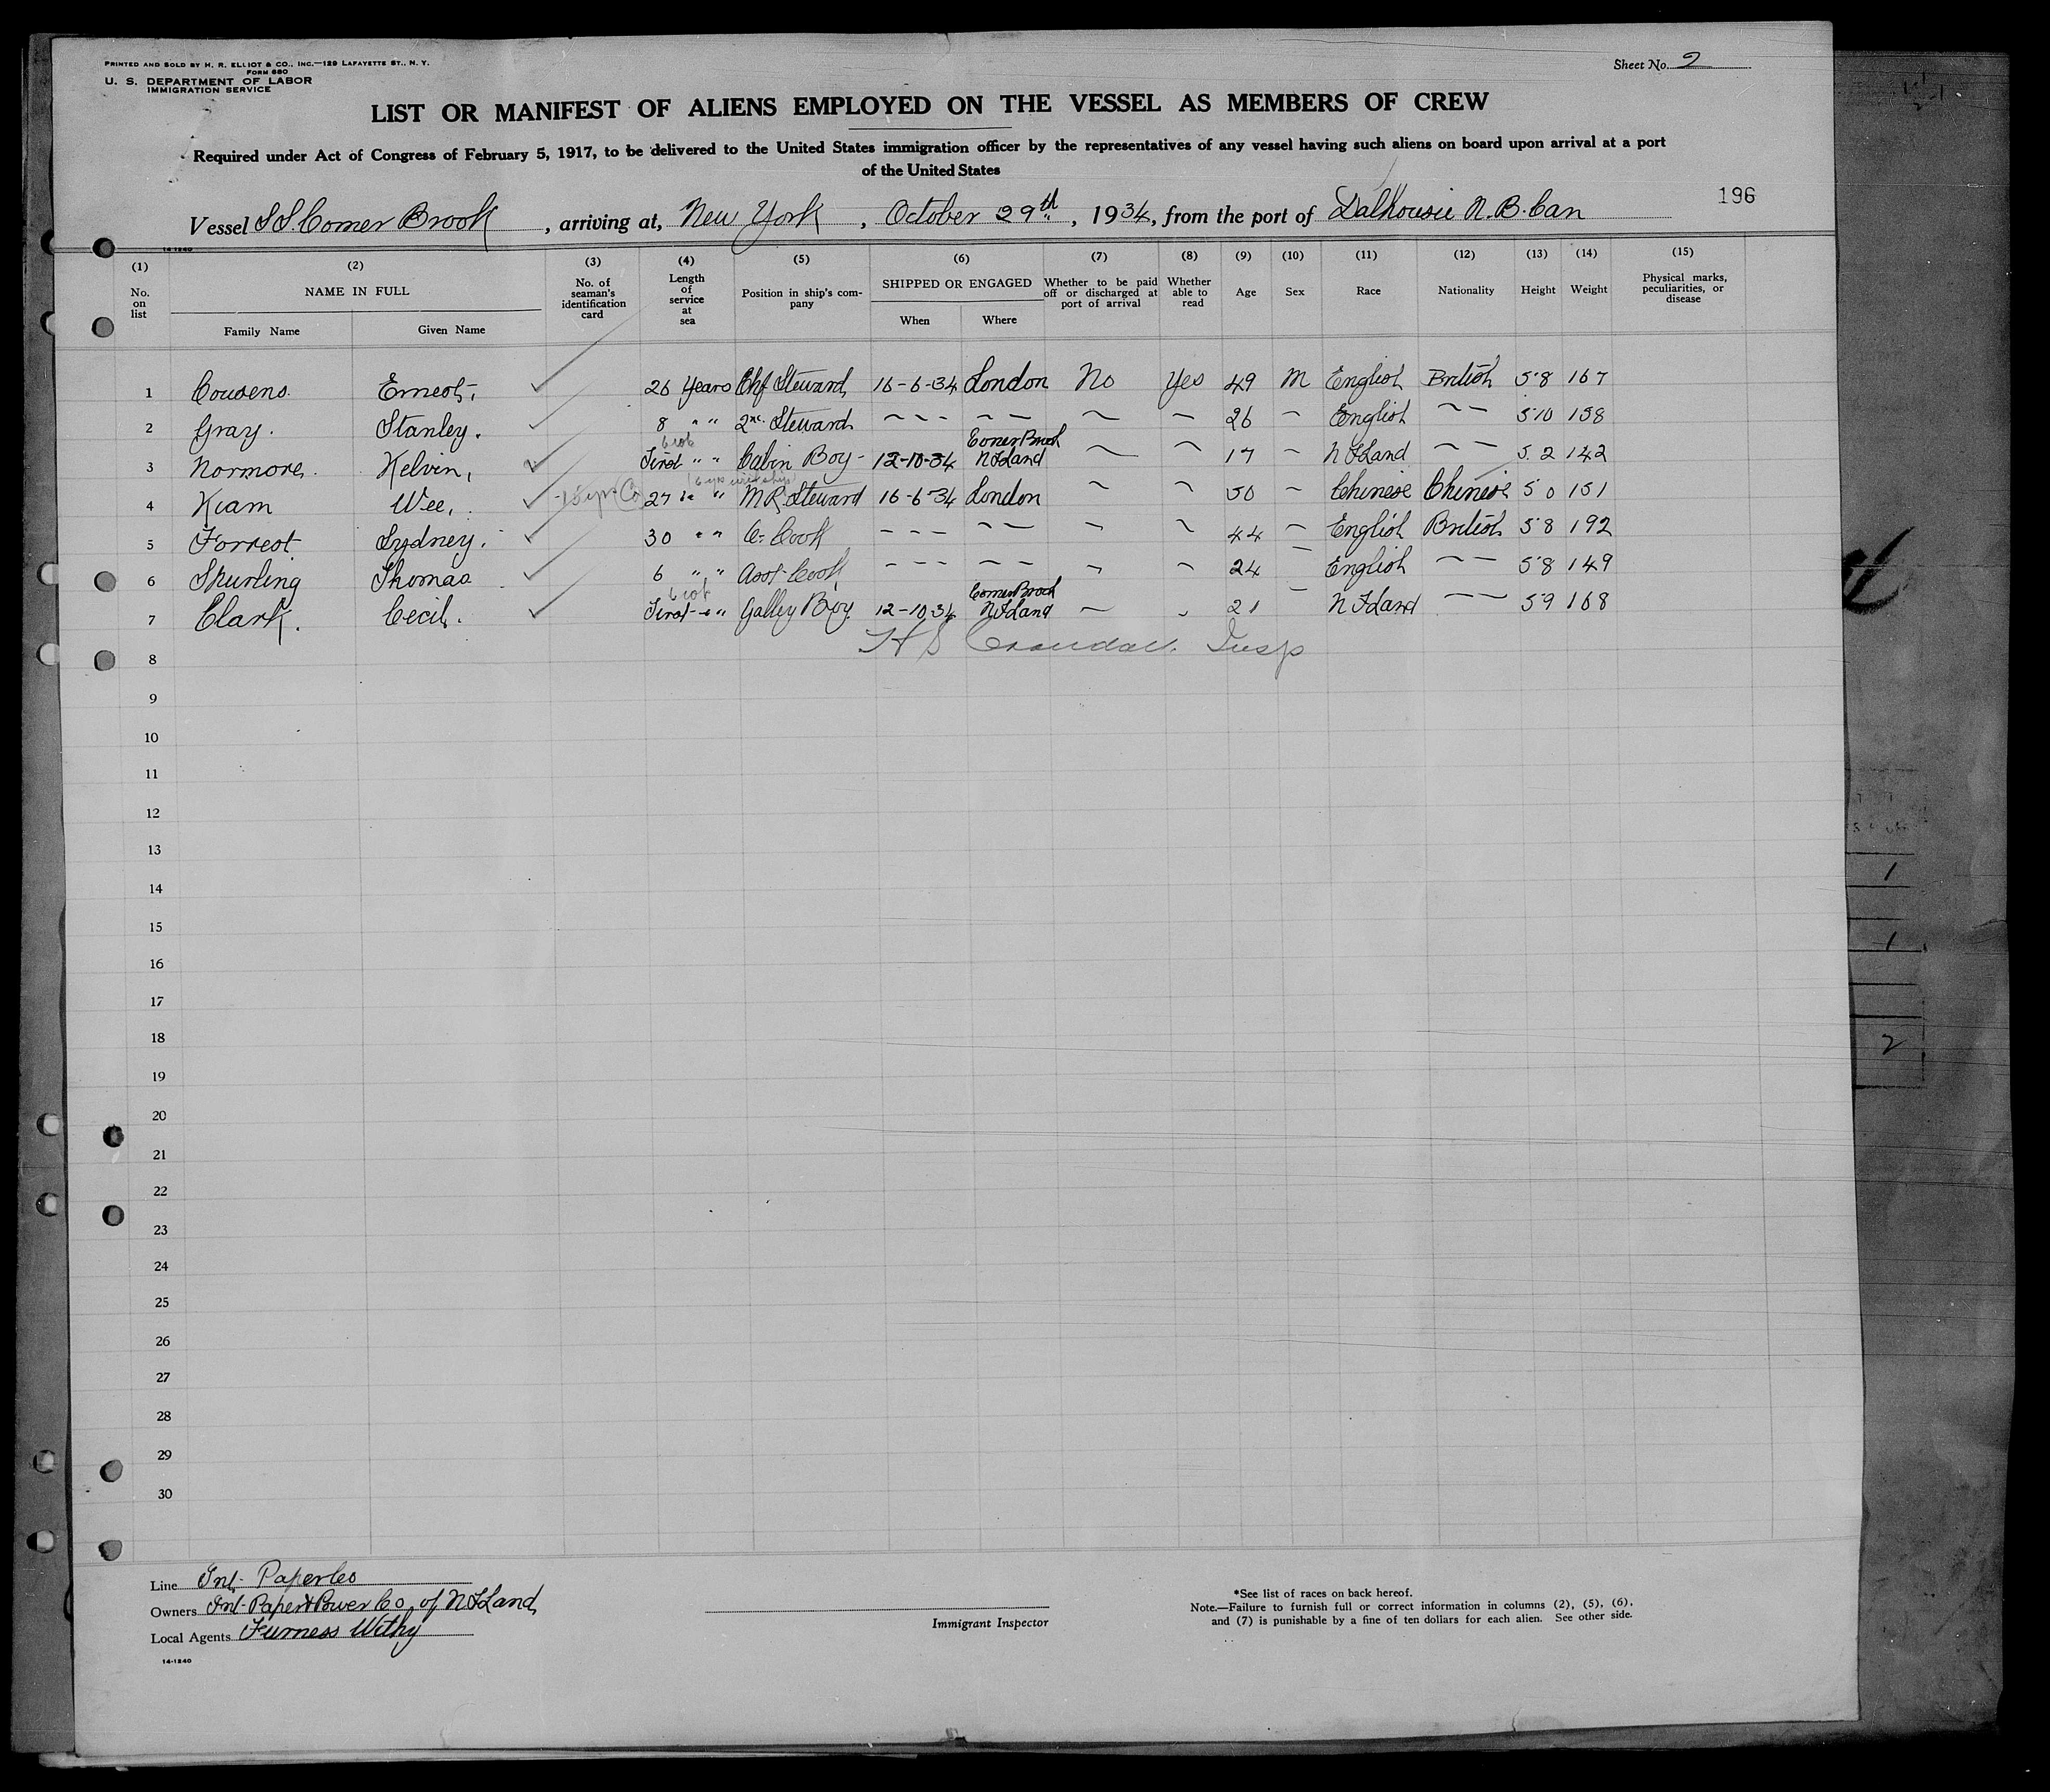 PRINTED AND SOLD BY H. R. ELLIOT & CO., INC.—129 LAFAYETTE ST., N. Y.
FORM 680
U. S. DEPARTMENT OF LABOR
IMMIGRATION SERVICE
Sheet No. 2
LIST OR MANIFEST OF ALIENS EMPLOYED ON THE VESSEL AS MEMBERS OF CREW
Required under Act of Congress of February 5, 1917, to be delivered to the United States immigration officer by the representatives of any vessel having such aliens on board upon arrival at a port
of the United States
196
Vessel SS. Corner Brook, arriving at, New York, October 29th, 1934, from the port of Dalhousie N.B. Can
14-1240
(1) No. on list
(2) NAME IN FULL Family Name Given Name
(3) No. of seaman's identification card
(4) Length of service at sea
(5) Position in ship's company
(6) SHIPPED OR ENGAGED When Where
(7) Whether to be paid off or discharged at port of arrival
(8) Whether able to read
(9) Age
(10) Sex
(11) Race
(12) Nationality
(13) Height
(14) Weight
(15) Physical marks, peculiarities, or disease
1 Cousens. Ernest. 26 Years Chf Steward 16-6-34 London No Yes 49 M English British 5'8 167
2 Gray. Stanley. 8 " " 2nd. Steward - - - - - ~ ~ 26 ~ English ~ ~ 5'10 158
3 Normore. Kelvin, First " " Cabin Boy - 12-10-34 Corner Brook NFLand ~ ~ 17 ~ NFLand ~ ~ 5.2 142
4 Kiam Wee, 27 " " M.R. Steward 16-6-34 London ~ ~ 50 ~ Chinese Chinese 5 0 151
5 Forrest Sydney. 30 " " C. Cook - - - - - ~ ~ 44 ~ English British 5'8 192
6 Spurling Thomas 6 " " Asst Cook - - - - - ~ ~ 24 ~ English ~ ~ 5'8 149
7 Clark. Cecil. First " " Galley Boy. 12-10-34 Corner Brook NFLand ~ ~ 21 ~ NFLand ~ ~ 5'9 168
8
9
10
11
12
13
14
15
16
17
18
19
20
21
22
23
24
25
26
27
28
29
30
Line Int. Paper Co
Owners Int. Paper & Power Co. of NFLand
Local Agents Furness Withy
14-1240
Immigrant Inspector
*See list of races on back hereof.
Note.—Failure to furnish full or correct information in columns (2), (5), (6),
and (7) is punishable by a fine of ten dollars for each alien. See other side.